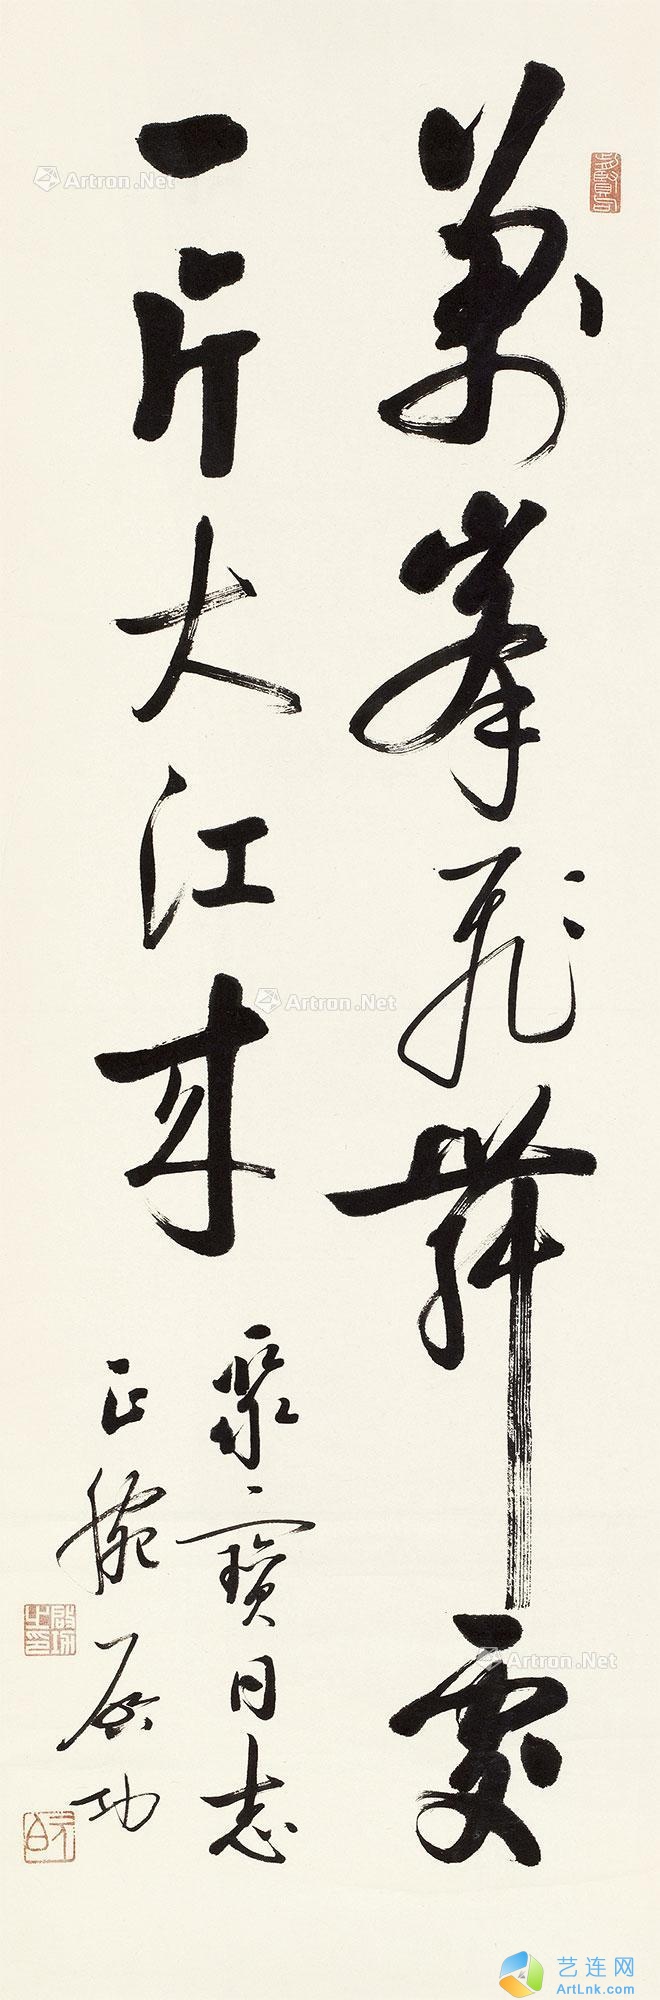 萬峯飛舞處
一片大江來
聚寶同志
正腕 启功
啟功之印
元白
Artron.Net
Artron.Net
Artron.Net
艺连网
ArtLnk.com